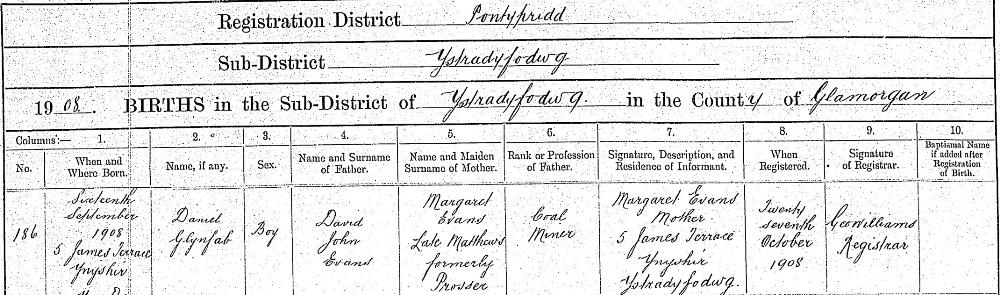 Registration District Pontypridd
Sub-District Ystradyfodwg
1908. BIRTHS in the Sub-District of Ystradyfodwg. in the County of Glamorgan
Columns:— 1. 2. 3. 4. 5. 6. 7. 8. 9. 10.
No. When and Where Born. Name, if any. Sex. Name and Surname of Father. Name and Maiden Surname of Mother. Rank or Profession of Father. Signature, Description, and Residence of Informant. When Registered. Signature of Registrar. Baptismal Name if added after Registration of Birth.
186
Sixteenth
September
1908
5 James Terrace
Ynyshir
Daniel
Glynfab
Boy
David
John
Evans
Margaret
Evans
Late Matthews
formerly
Prosser
Coal
Miner
Margaret Evans
Mother
5 James Terrace
Ynyshir
Ystradyfodwg.
Twenty
seventh
October
1908
Geo Williams
Registrar